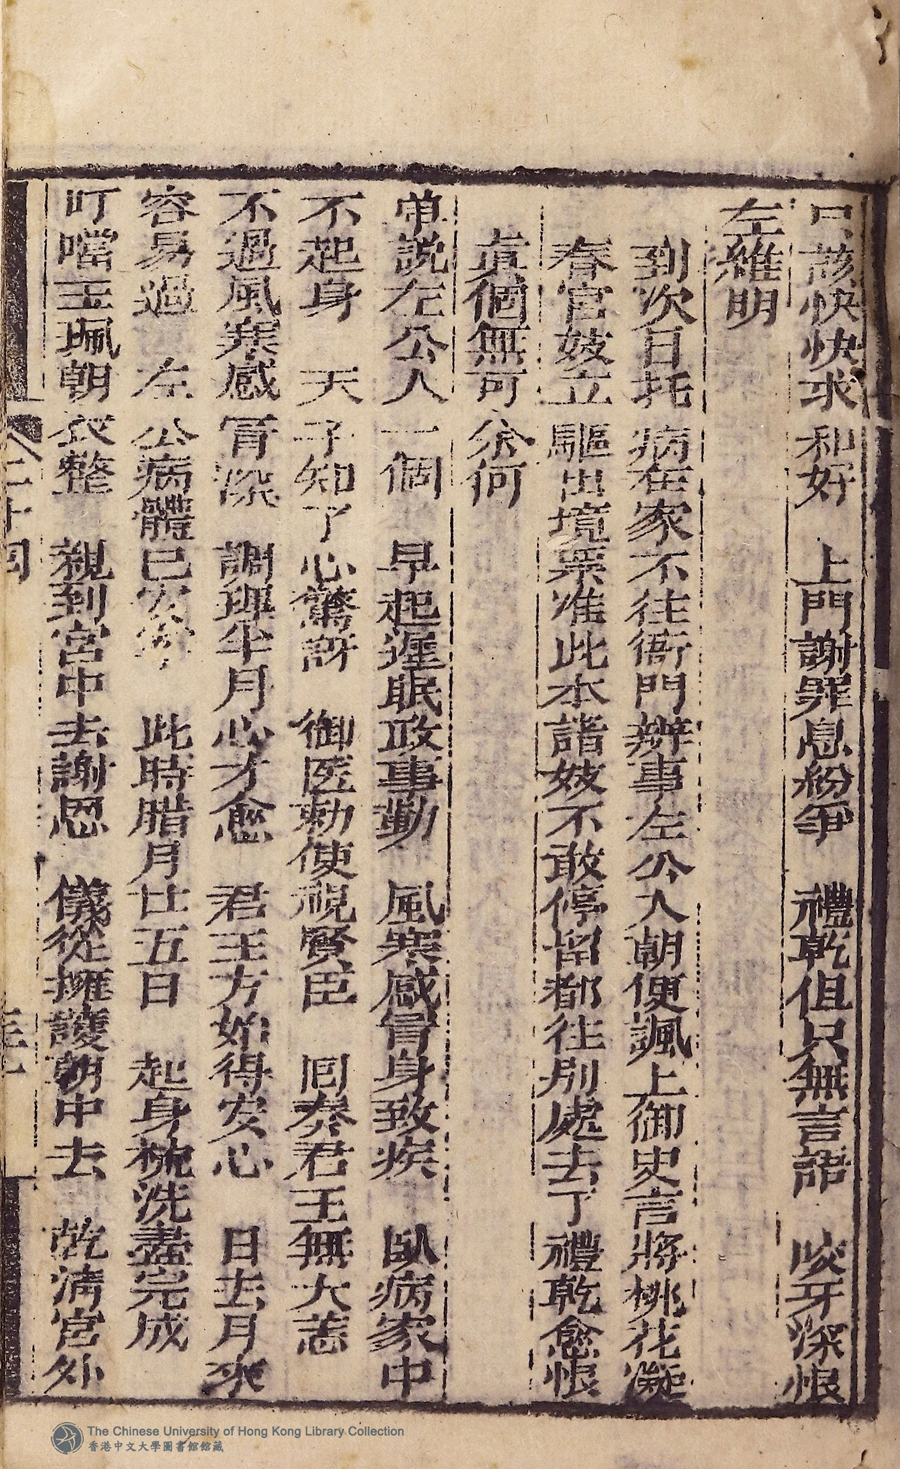 只該快快求和好　上門謝罪息紛爭　禮乾但只無言語　咬牙深恨
左維明
到次日托病在家不往衙門辦事左公入朝便諷上御史言將桃花凝
春官妓立驅出境票准此本諸妓不敢停留都往別處去了禮乾愈恨
真個無可奈何
單説左公人一個　早起遲眠政事勤　風寒感冒身致疾　臥病家中
不起身　天子知了心驚訝　御医勅使視賢臣　囘奏君王無大恙
不過風寒感冒深　調理半月必才愈　君王方始得安心　日去月來
容易過　左公病體已安寧　此時腊月廿五日　起身梳洗盡完成
叮噹玉珮朝衣整　親到宮中去謝恩　儀從擁護朝中去　乾清宮外
二十囘
The Chinese University of Hong Kong Library Collection
香港中文大學圖書館館藏